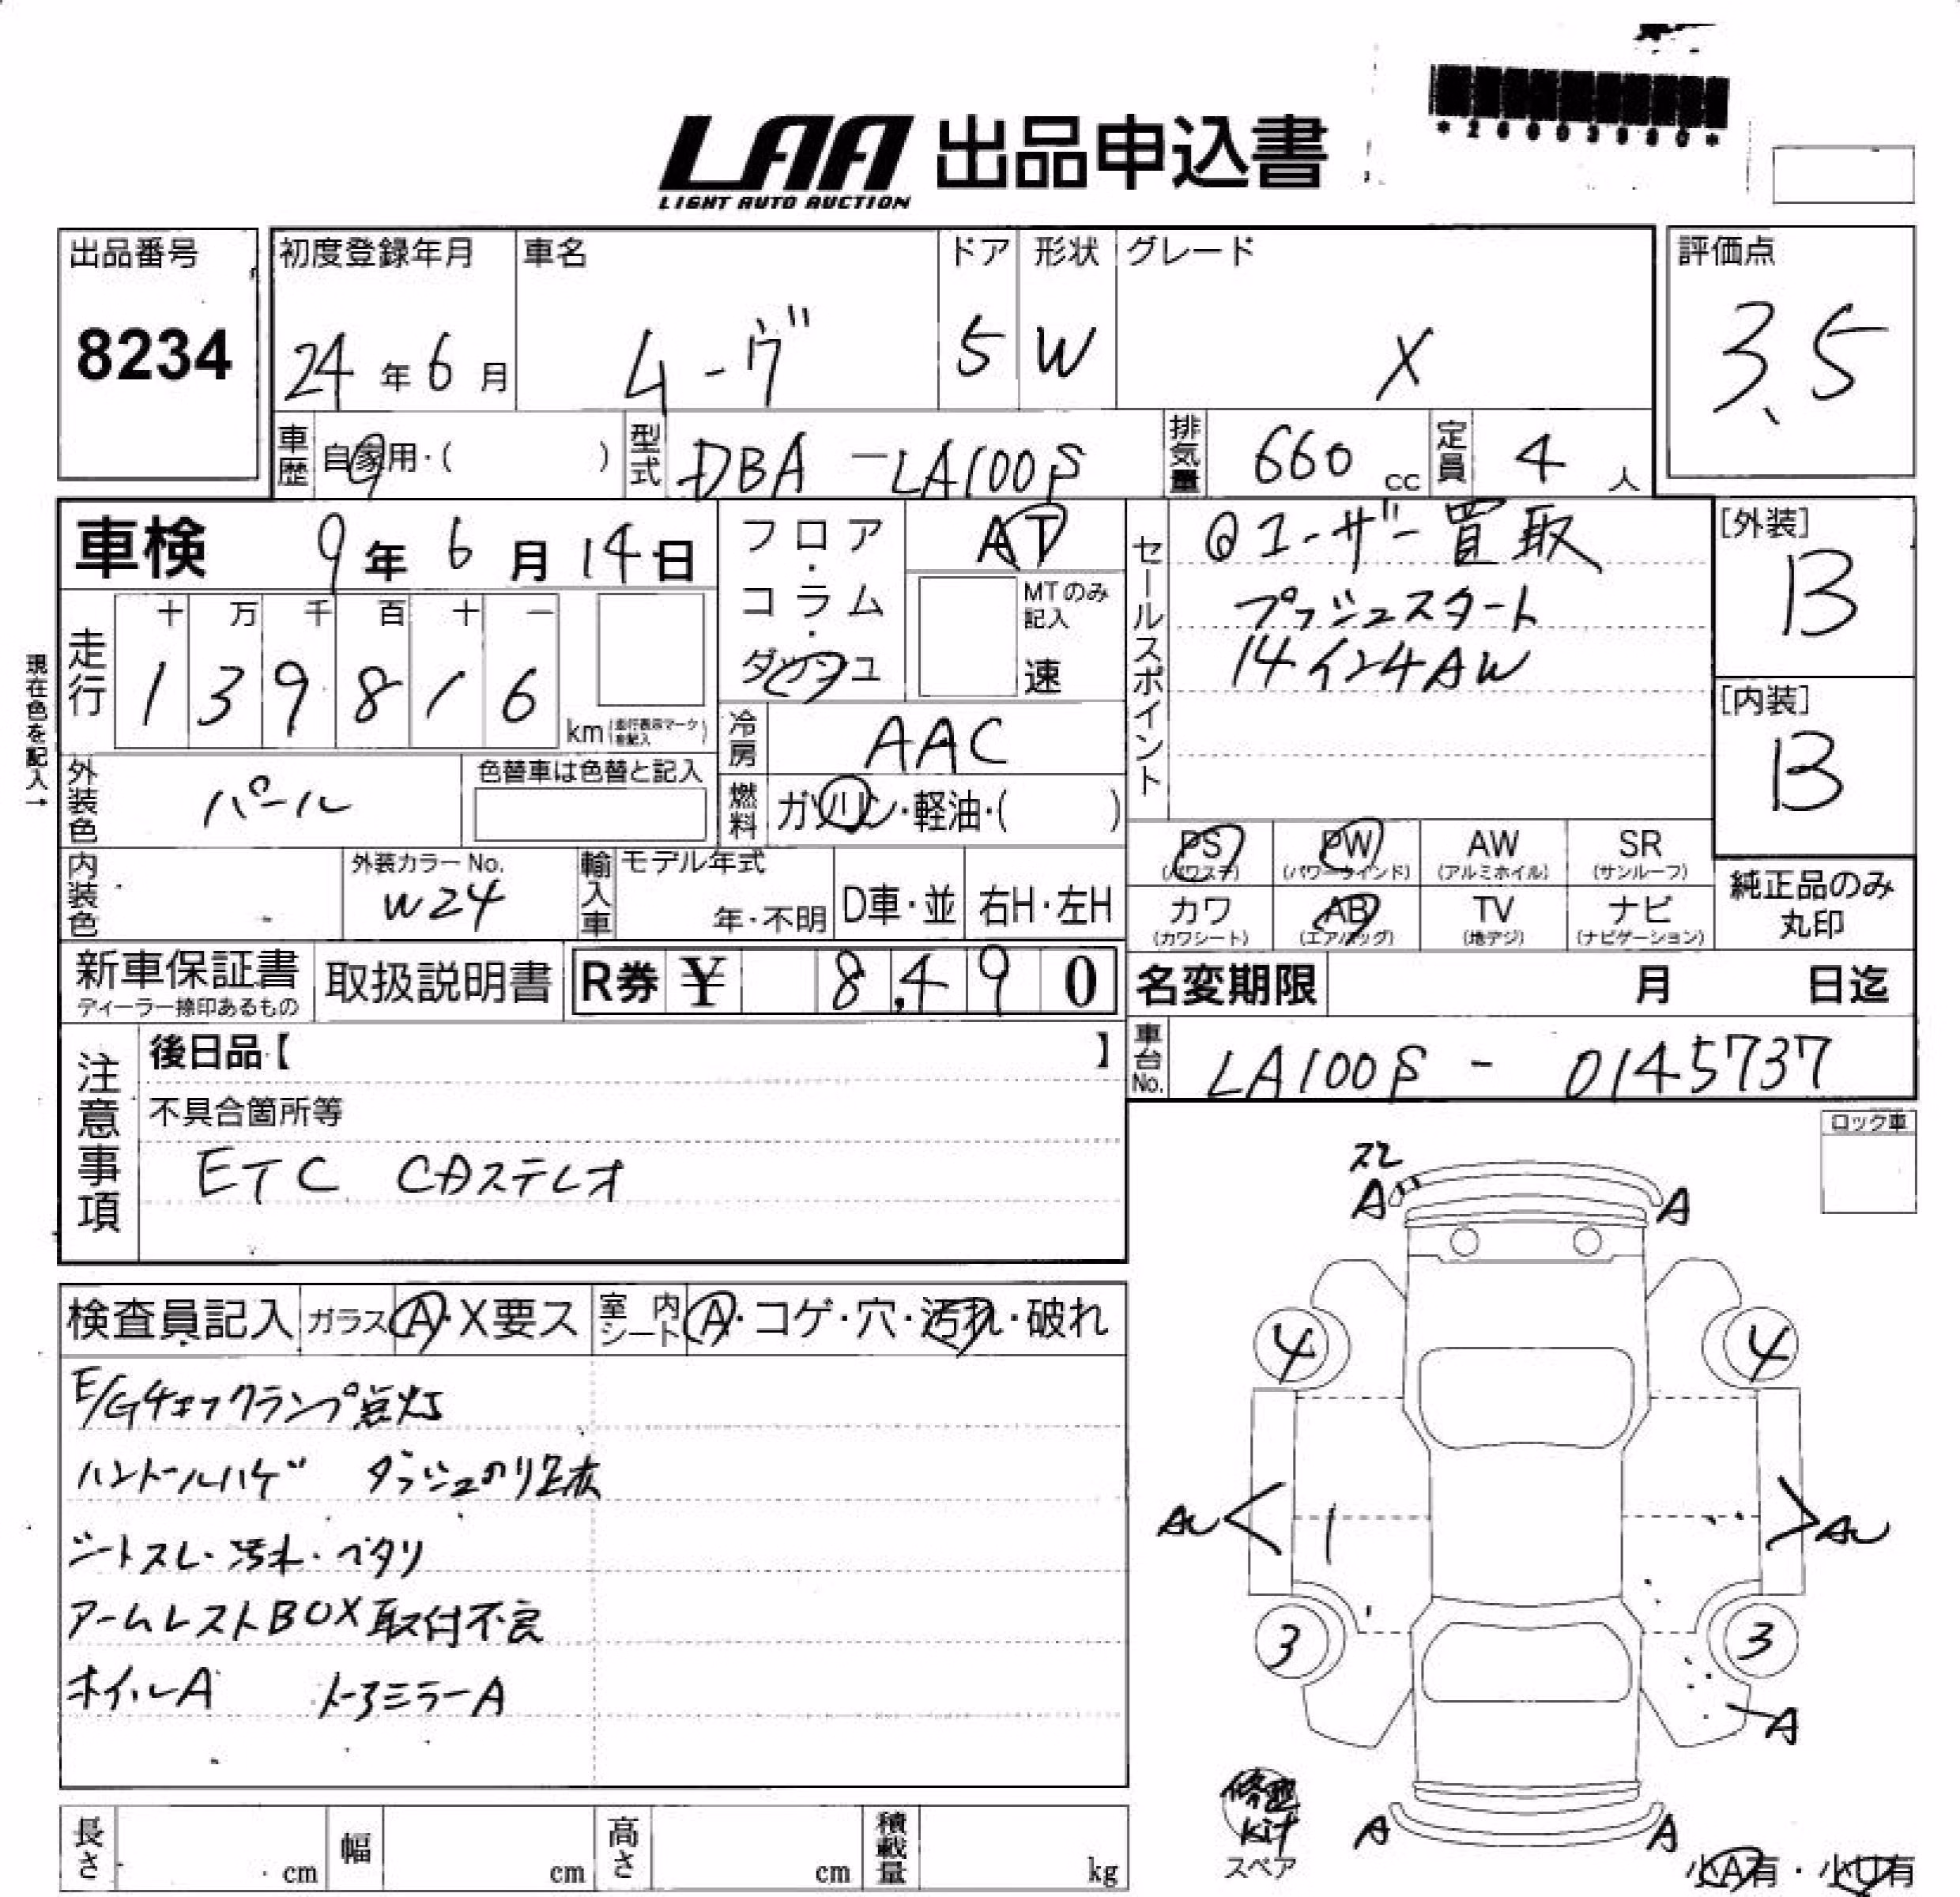 *26003980*
LAA 出品申込書
LIGHT AUTO AUCTION
出品番号
8234
初度登録年月
24年6月
車名
ムーヴ
ドア
5
形状
W
グレード
X
評価点
3.5
車歴 自家用・( )
型式 DBA-LA100S
排気量 660cc
定員 4人
車検 9年6月14日
現在色を記入→
走行
十 万 千 百 十 一
1 3 9 8 1 6
km (走行表示マークを記入)
フロア・コラム・ダッシュ
AT
MTのみ記入
速
冷房 AAC
燃料 ガソリン・軽油・( )
セールスポイント
@ユーザー買取
プッシュスタート
14インチAW
[外装]
B
[内装]
B
外装色 パール
色替車は色替と記入
内装色
外装カラーNo.
W24
輸入車
モデル年式
年・不明
D車・並
右H・左H
PS
(パワステ)
PW
(パワーウインド)
AW
(アルミホイル)
SR
(サンルーフ)
カワ
(カワシート)
AB
(エアバッグ)
TV
(地デジ)
ナビ
(ナビゲーション)
純正品のみ
丸印
新車保証書
ディーラー捺印あるもの
取扱説明書
R券 ¥ 8,490
名変期限 月 日迄
車台No. LA100S - 0145737
注意事項
後日品【 】
不具合箇所等
ETC CDステレオ
ロック車
検査員記入
ガラス A・X要ス
室内シート A・コゲ・穴・汚れ・破れ
E/Gチェックランプ点灯
ハンドルハゲ ダッシュのり跡
シートスレ・汚れ・ベタリ
アームレストBOX取付不良
ホイルA ドアミラーA
スレ
A A
4 4
AU 1 AU
3 3
A
A A
修理
kit
スペア
小A有・小U有
長さ cm
幅 cm
高さ cm
積載量 kg